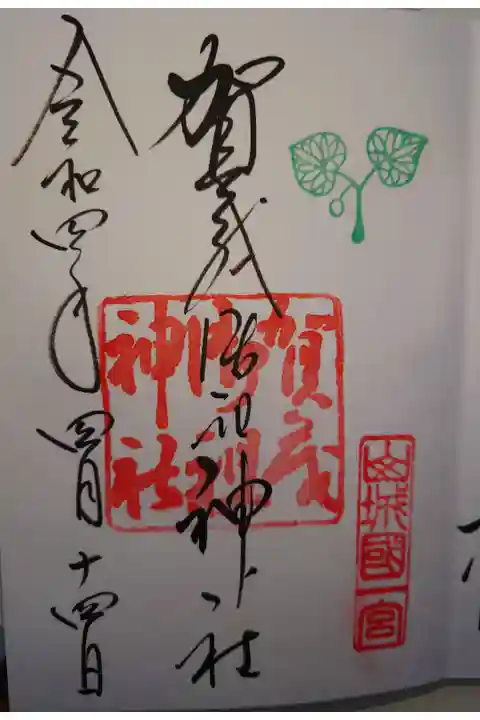 山城國一宮
賀茂御祖神社
賀茂
御祖
神社
令和四年四月十四日